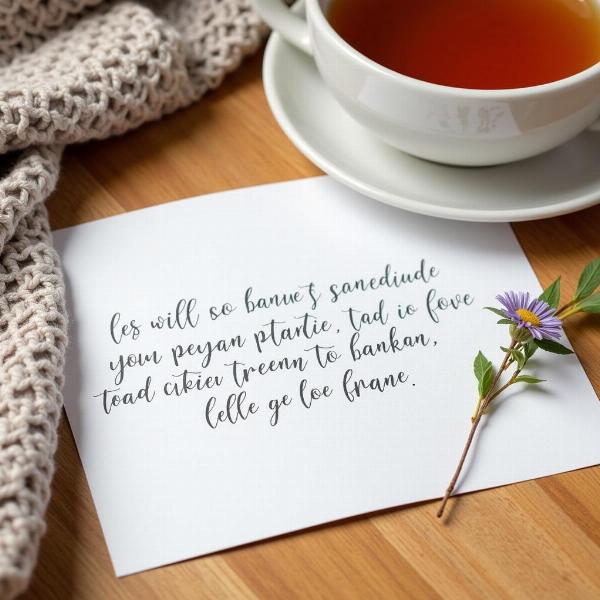 les will so banue's sanediude
your peyan ptartie, tad io fove
toad citien treenn to bankan,
lelle ge loe frane.